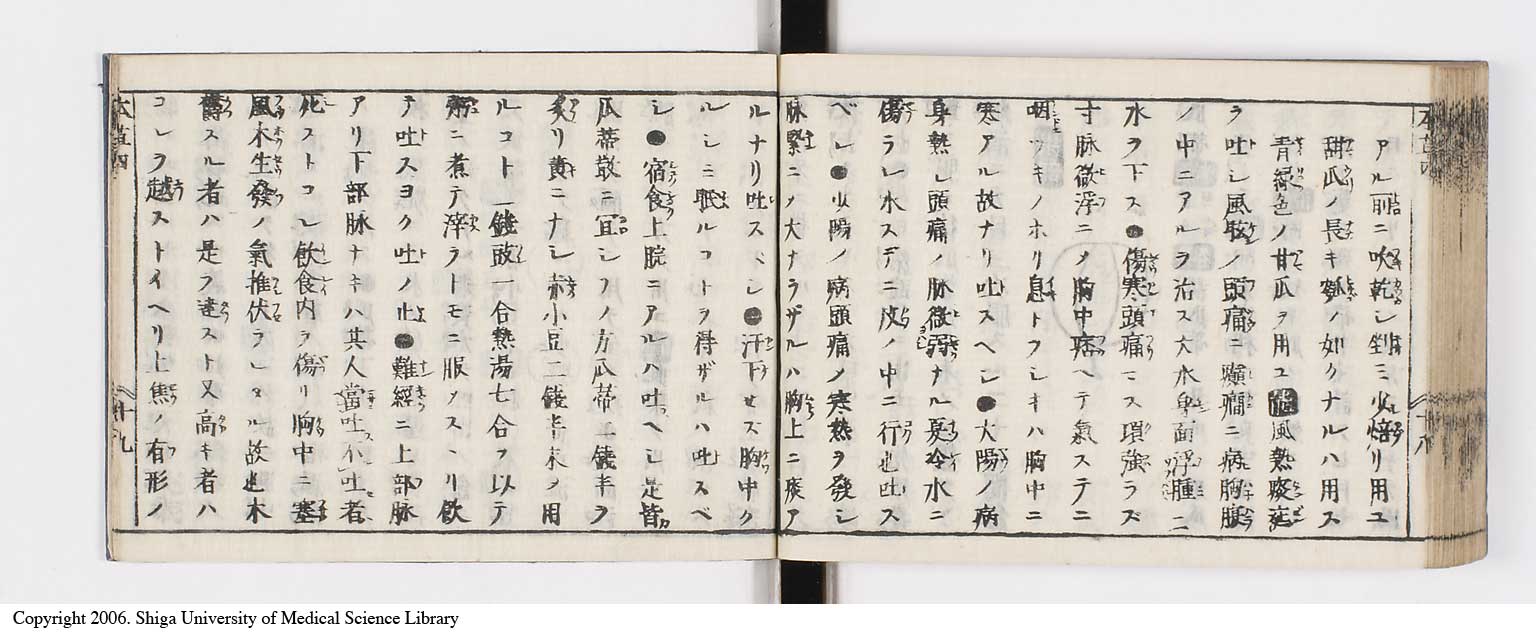 アル前ニ吹乾シ剉ミ少焙リ用ユ
甜瓜ノ長キ瓠ノ如クナルハ用ス
青緑色ノ甘瓜ヲ用ユ 風熱痰涎
ヲ吐シ風眩ノ頭痛ニ癲癇ニ病胸腹
ノ中ニアルヲ治ス大水身面浮腫ニ
水ヲ下ス●傷寒頭痛ニス環強ラズ
寸脉微浮ニノ胸中痞ヘテ氣ステニ
咽ツキノホリ息トフシキハ胸中ニ
寒アル故ナリ吐スヘシ●大陽ノ病
身熱シ頭痛ノ脉微弱ナル夏冷水ニ
傷ラレ水スデニ皮ノ中ニ行也吐ス
ベシ●少陽ノ病頭痛ノ寒熱ヲ發シ
脉緊ニノ大ナラザルハ胸上ニ痰ア
ルナリ吐スベシ●汗下セズ胸中ク
ルシミ眠ルコトヲ得ザルハ吐スベ
シ●宿食上脘ニアルハ吐ヘシ是皆
瓜蒂散ニ冝シソノ方瓜蒂二錢半ヲ
炙リ黄ニナシ赤小豆二錢半末ノ用
ルコト一錢豉一合熱湯七合ヲ以テ
粥ニ煮テ滓ヲトモニ服ノスヘリ飲
テ吐スヨク吐ノ止●難經ニ上部脉
アリ下部脉ナキハ其人當吐不吐者
死ストコレ飲食内ヲ傷リ胸中ニ塞
風木生發ノ氣推伏ラレタル故也木
鬱スル者ハ是ヲ達スト又高キ者ハ
コレヲ越ストイヘリ上焦ノ有形ノ
本草四
十八
本草四
十九
Copyright 2006. Shiga University of Medical Science Library